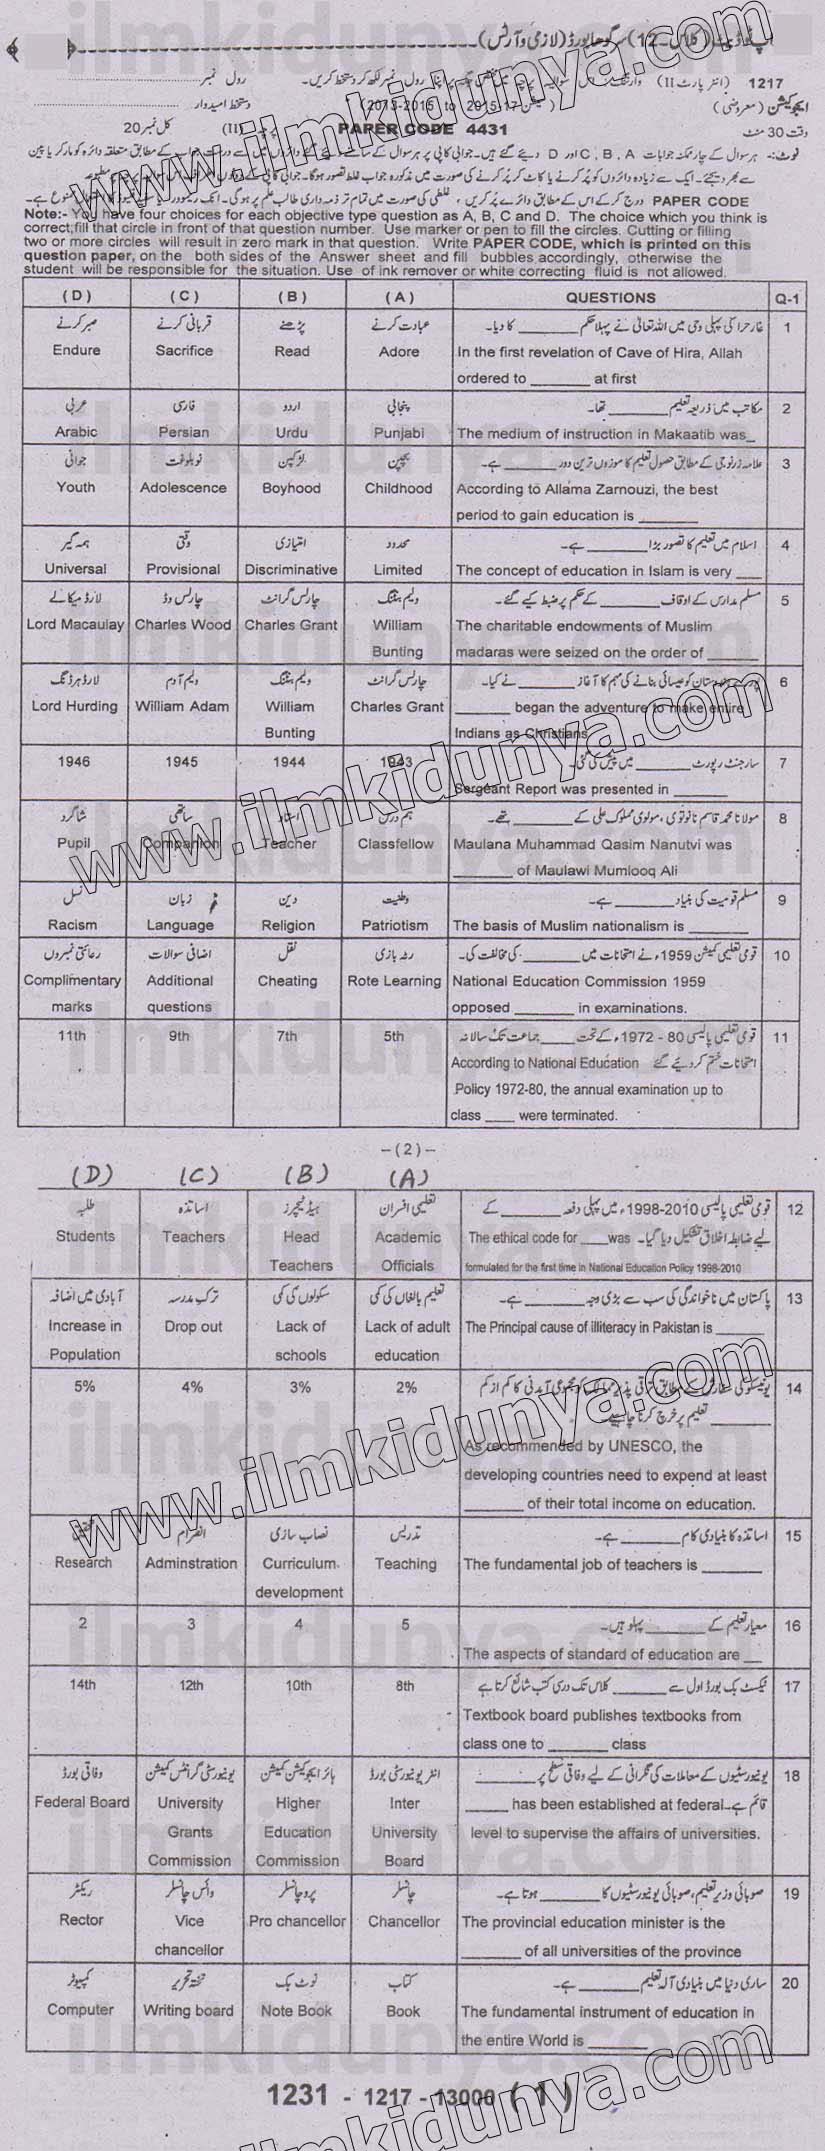 اپ ٹو ڈیٹ (کلاس -12) سرگودھا بورڈ (لازمی و آرٹس)
1217 (انٹر پارٹ II) رول نمبر
ایجوکیشن (معروضی) (سیشن 2015-17 to 2013-2015) دستخط امیدوار
وقت 30 منٹ PAPER CODE 4431 (II) کل نمبر 20
نوٹ:- ہر سوال کے چار ممکنہ جوابات C, B, A اور D دیئے گئے ہیں۔
PAPER CODE درج کر کے اس کے مطابق دائرے پُر کریں، غلطی کی صورت میں تمام تر ذمہ داری طالب علم پر ہوگی۔
Note:- You have four choices for each objective type question as A, B, C and D. The choice which you think is
correct, fill that circle in front of that question number. Use marker or pen to fill the circles. Cutting or filling
two or more circles will result in zero mark in that question. Write PAPER CODE, which is printed on this
question paper, on the both sides of the Answer sheet and fill bubbles accordingly, otherwise the
student will be responsible for the situation. Use of ink remover or white correcting fluid is not allowed.
(D) (C) (B) (A) QUESTIONS Q-1
صبر کرنے قربانی کرنے پڑھنے عبادت کرنے غار حرا کی پہلی وحی میں اللہ تعالیٰ نے پہلا حکم ________ کا دیا۔ 1
Endure Sacrifice Read Adore In the first revelation of Cave of Hira, Allah
ordered to ________ at first
عربی فارسی اردو پنجابی مکاتب میں ذریعہ تعلیم ________ تھا۔ 2
Arabic Persian Urdu Punjabi The medium of instruction in Makaatib was_
جوانی نوبلوغت لڑکپن بچپن علامہ زرنوجی کے مطابق حصول تعلیم کا موزوں ترین دور ________ ہے۔ 3
Youth Adolescence Boyhood Childhood According to Allama Zarnouzi, the best
period to gain education is ________
ہمہ گیر وقتی امتیازی محدود اسلام میں تعلیم کا تصور بڑا ________ ہے۔ 4
Universal Provisional Discriminative Limited The concept of education in Islam is very ___
لارڈ میکالے چارلس وڈ چارلس گرانٹ ولیم بنٹنگ مسلم مدارس کے اوقاف ________ کے حکم پر ضبط کیے گئے۔ 5
Lord Macaulay Charles Wood Charles Grant William The charitable endowments of Muslim
Bunting madaras were seized on the order of ________
لارڈ ہرڈنگ ولیم آدم ولیم بنٹنگ چارلس گرانٹ پورے ہندوستان کو عیسائی بنانے کی مہم کا آغاز ________ نے کیا۔ 6
Lord Hurding William Adam William Charles Grant ________ began the adventure to make entire
Bunting Indians as Christians.
1946 1945 1944 1943 سارجنٹ رپورٹ ________ میں پیش کی گئی۔ 7
Sergeant Report was presented in ________
شاگرد ساتھی استاد ہم درس مولانا محمد قاسم نانوتوی، مولوی مملوک علی کے ________ تھے۔ 8
Pupil Companion Teacher Classfellow Maulana Muhammad Qasim Nanutvi was
________ of Maulawi Mumlooq Ali
نسل زبان دین وطنیت مسلم قومیت کی بنیاد ________ ہے۔ 9
Racism Language Religion Patriotism The basis of Muslim nationalism is ________
رعائتی نمبروں اضافی سوالات نقل رٹہ بازی قومی تعلیمی کمیشن 1959ء نے امتحانات میں ________ کی مخالفت کی۔ 10
Complimentary Additional Cheating Rote Learning National Education Commission 1959
marks questions opposed ________ in examinations.
11th 9th 7th 5th قومی تعلیمی پالیسی 80 - 1972ء کے تحت ____ جماعت تک سالانہ 11
امتحانات ختم کر دیئے گئے According to National Education
Policy 1972-80, the annual examination up to
class ____ were terminated.
-(2)-
(D) (C) (B) (A)
طلبہ اساتذہ ہیڈ ٹیچرز تعلیمی افسران قومی تعلیمی پالیسی 2010-1998ء میں پہلی دفعہ ________ کے 12
Students Teachers Head Academic لیے ضابطہ اخلاق تشکیل دیا گیا۔ The ethical code for ____was
Teachers Officials formulated for the first time in National Education Policy 1998-2010
آبادی میں اضافہ ترک مدرسہ سکولوں کی کمی تعلیم بالغاں کی کمی پاکستان میں ناخواندگی کی سب سے بڑی وجہ ________ ہے۔ 13
Increase in Drop out Lack of Lack of adult The Principal cause of illiteracy in Pakistan is ________
Population schools education
5% 4% 3% 2% یونیسکو کی سفارش کے مطابق ترقی پذیر ممالک کو مجموعی آمدنی کا کم از کم 14
________ تعلیم پر خرچ کرنا چاہیے
As recommended by UNESCO, the
developing countries need to expend at least
________ of their total income on education.
تحقیق انصرام نصاب سازی تدریس اساتذہ کا بنیادی کام ________ ہے۔ 15
Research Adminstration Curriculum Teaching The fundamental job of teachers is ________
development
2 3 4 5 معیار تعلیم کے ________ پہلو ہیں۔ 16
The aspects of standard of education are __
14th 12th 10th 8th ٹیکسٹ بک بورڈ اول سے ________ کلاس تک درسی کتب شائع کرتا ہے 17
Textbook board publishes textbooks from
class one to ________ class
وفاقی بورڈ یونیورسٹی گرانٹس کمیشن ہائر ایجوکیشن کمیشن انٹر یونیورسٹی بورڈ یونیورسٹیوں کے معاملات کی نگرانی کے لیے وفاقی سطح پر ________ 18
Federal Board University Higher Inter قائم ہے۔ ________ has been established at federal
Grants Education University level to supervise the affairs of universities.
Commission Commission Board
ریکٹر وائس چانسلر پرو چانسلر چانسلر صوبائی وزیر تعلیم، صوبائی یونیورسٹیوں کا ________ ہوتا ہے۔ 19
Rector Vice Pro chancellor Chancellor The provincial education minister is the
chancellor ________ of all universities of the province
کمپیوٹر تختہ تحریر نوٹ بک کتاب ساری دنیا میں بنیادی آلہ تعلیم ________ ہے۔ 20
Computer Writing board Note Book Book The fundamental instrument of education in
the entire World is ________
1231 - 1217 - 13000 ( 1 )
www.ilmkidunya.com
www.ilmkidunya.com
ilmkidunya.com